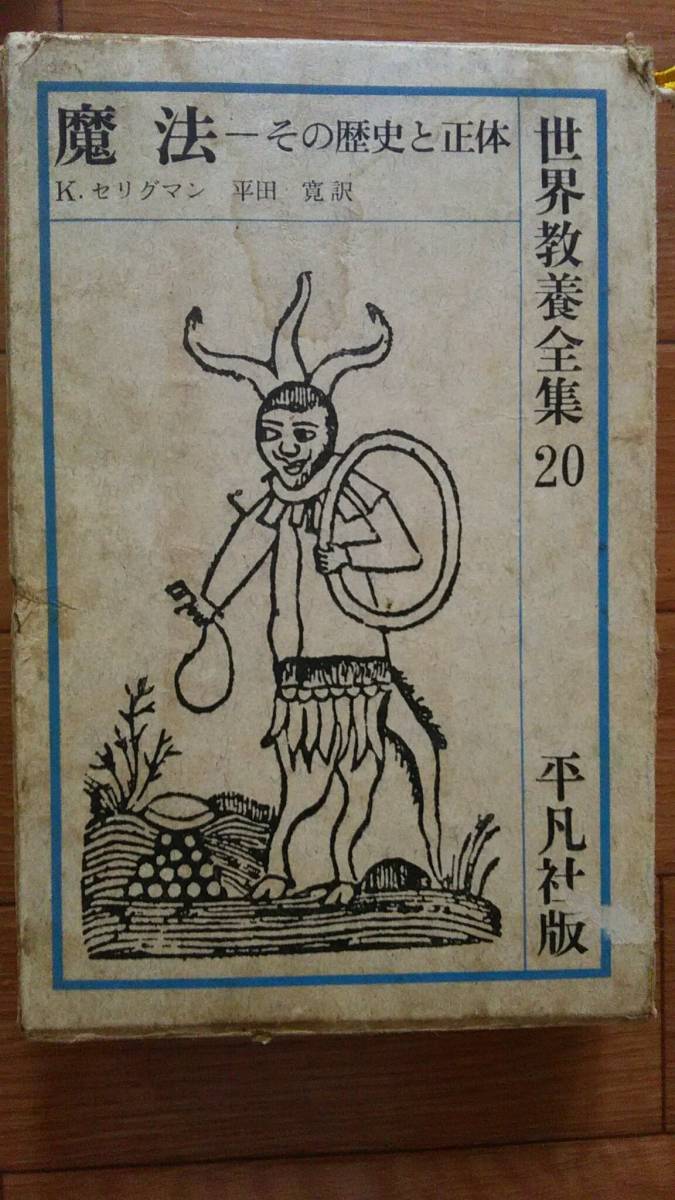 魔法―その歴史と正体
K.セリグマン 平田 寛訳
世界教養全集 20
平凡社版